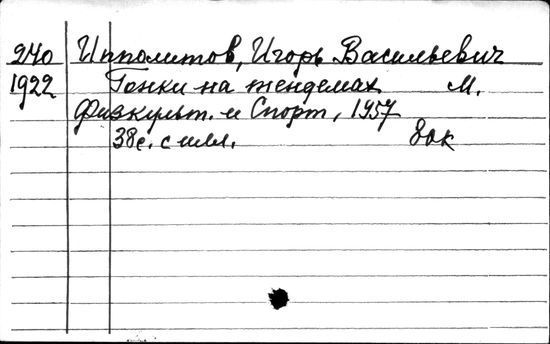 240 Ипполитов, Игорь Васильевич
1922 Гонки на тендемах М.
Физкульт. и Спорт, 1957
38с. с илл. 80к